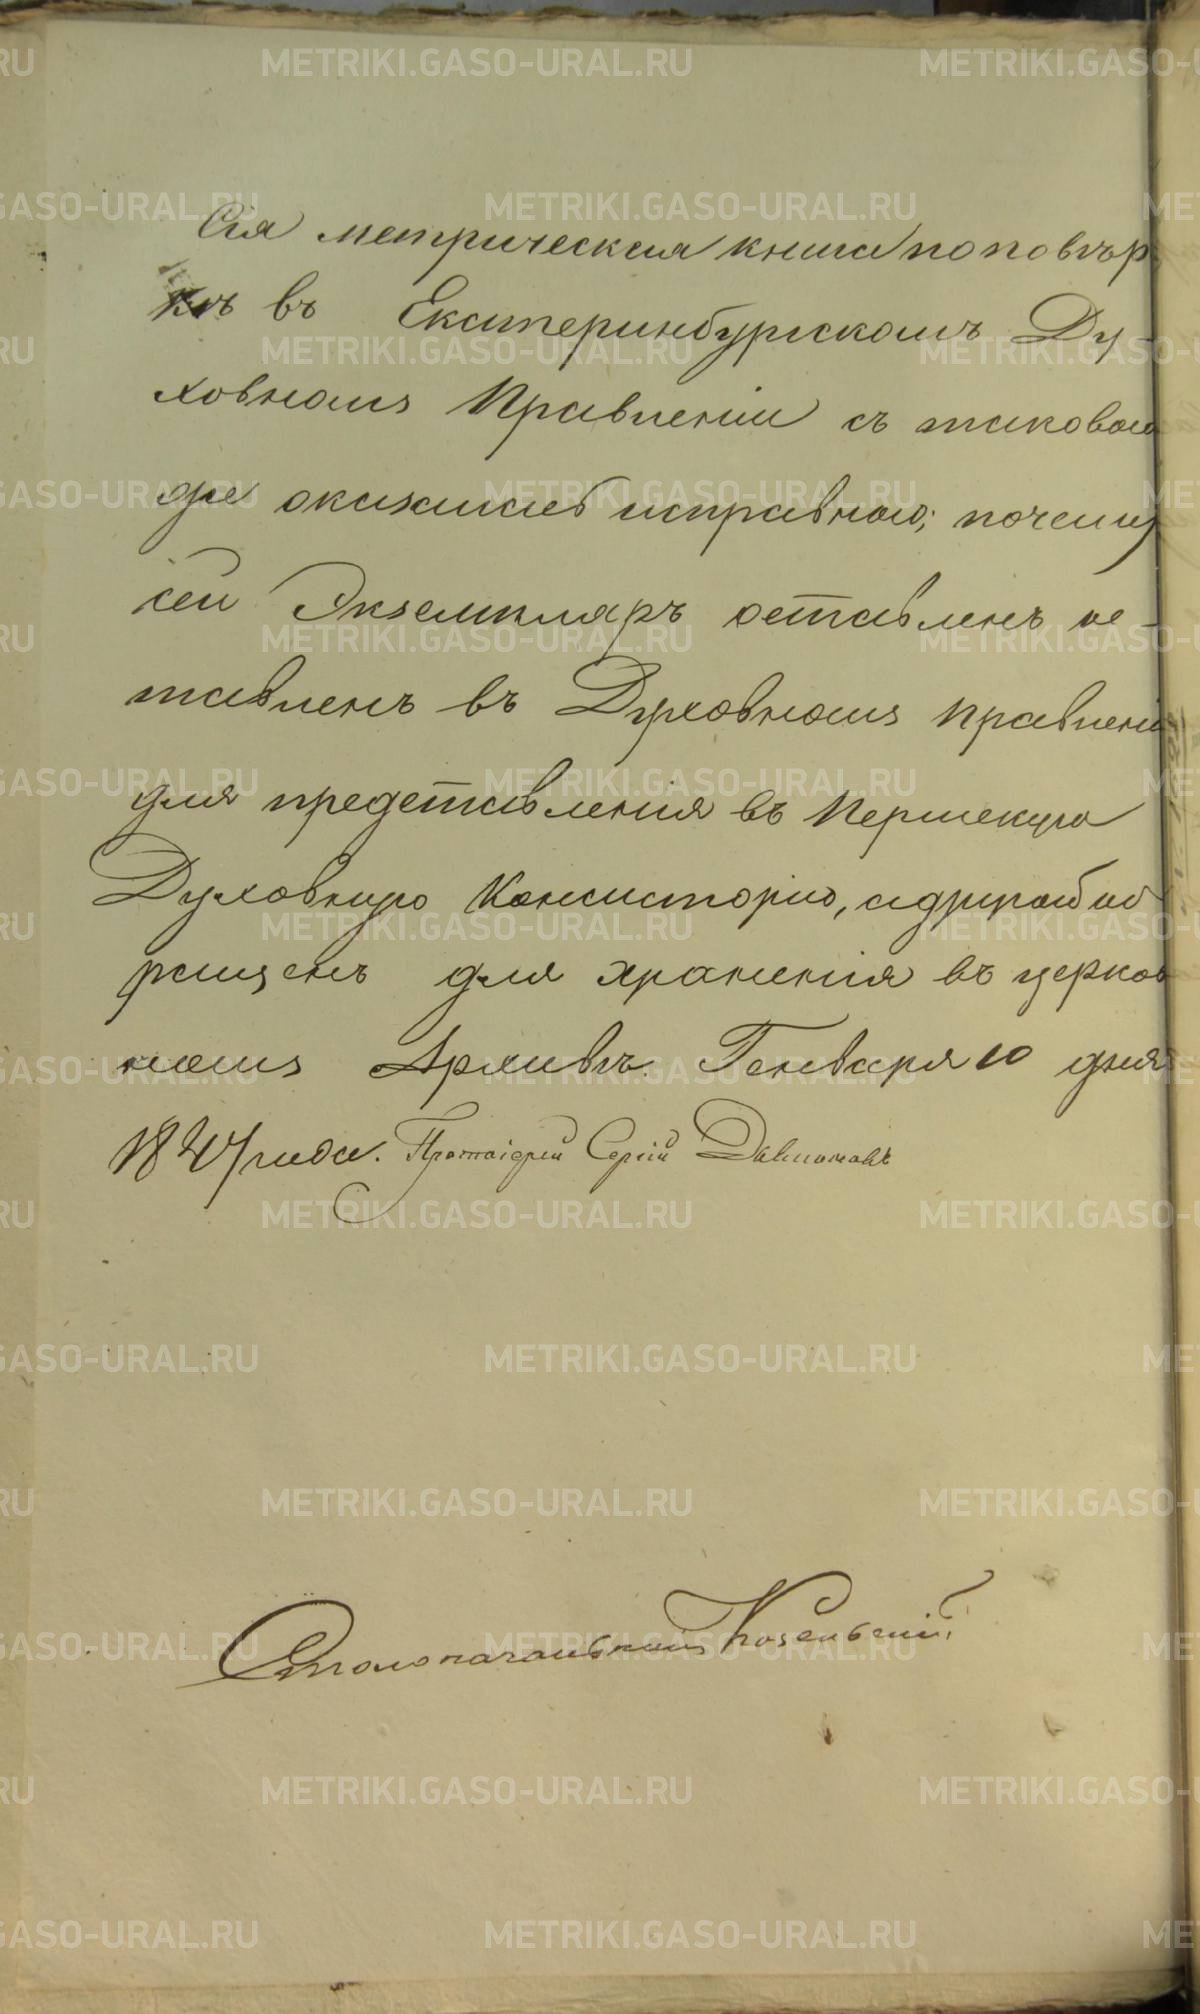 Сія метрическая книга по повѣр
кѣ въ Екатеринбургскомъ Ду-
ховномъ Правленіи съ таковою
же оказалась исправною; почему
сей Экземпляръ оставленъ ос-
тавленъ въ Духовномъ Правлені
для представленія въ Пермскую
Духовную Консисторію, а другой об
ращенъ для храненія въ церков
номъ Архивѣ. Генваря 10 дня
1847 года. Протоіерей Сергій
Столоначальникъ